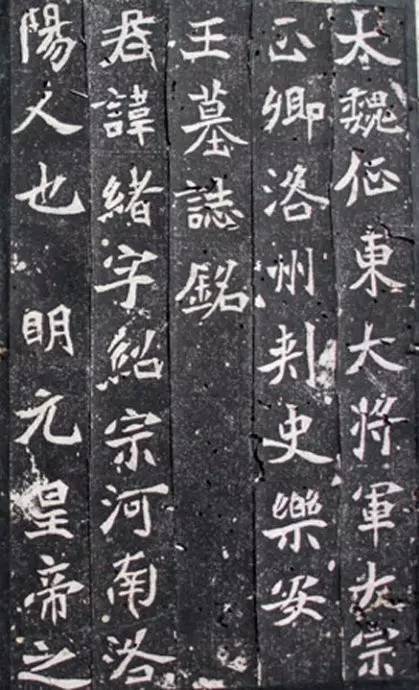 大魏征東大將軍大宗
正卿洛州刺史樂安
王墓誌銘
君諱緒字紹宗河南洛
陽人也 明元皇帝之